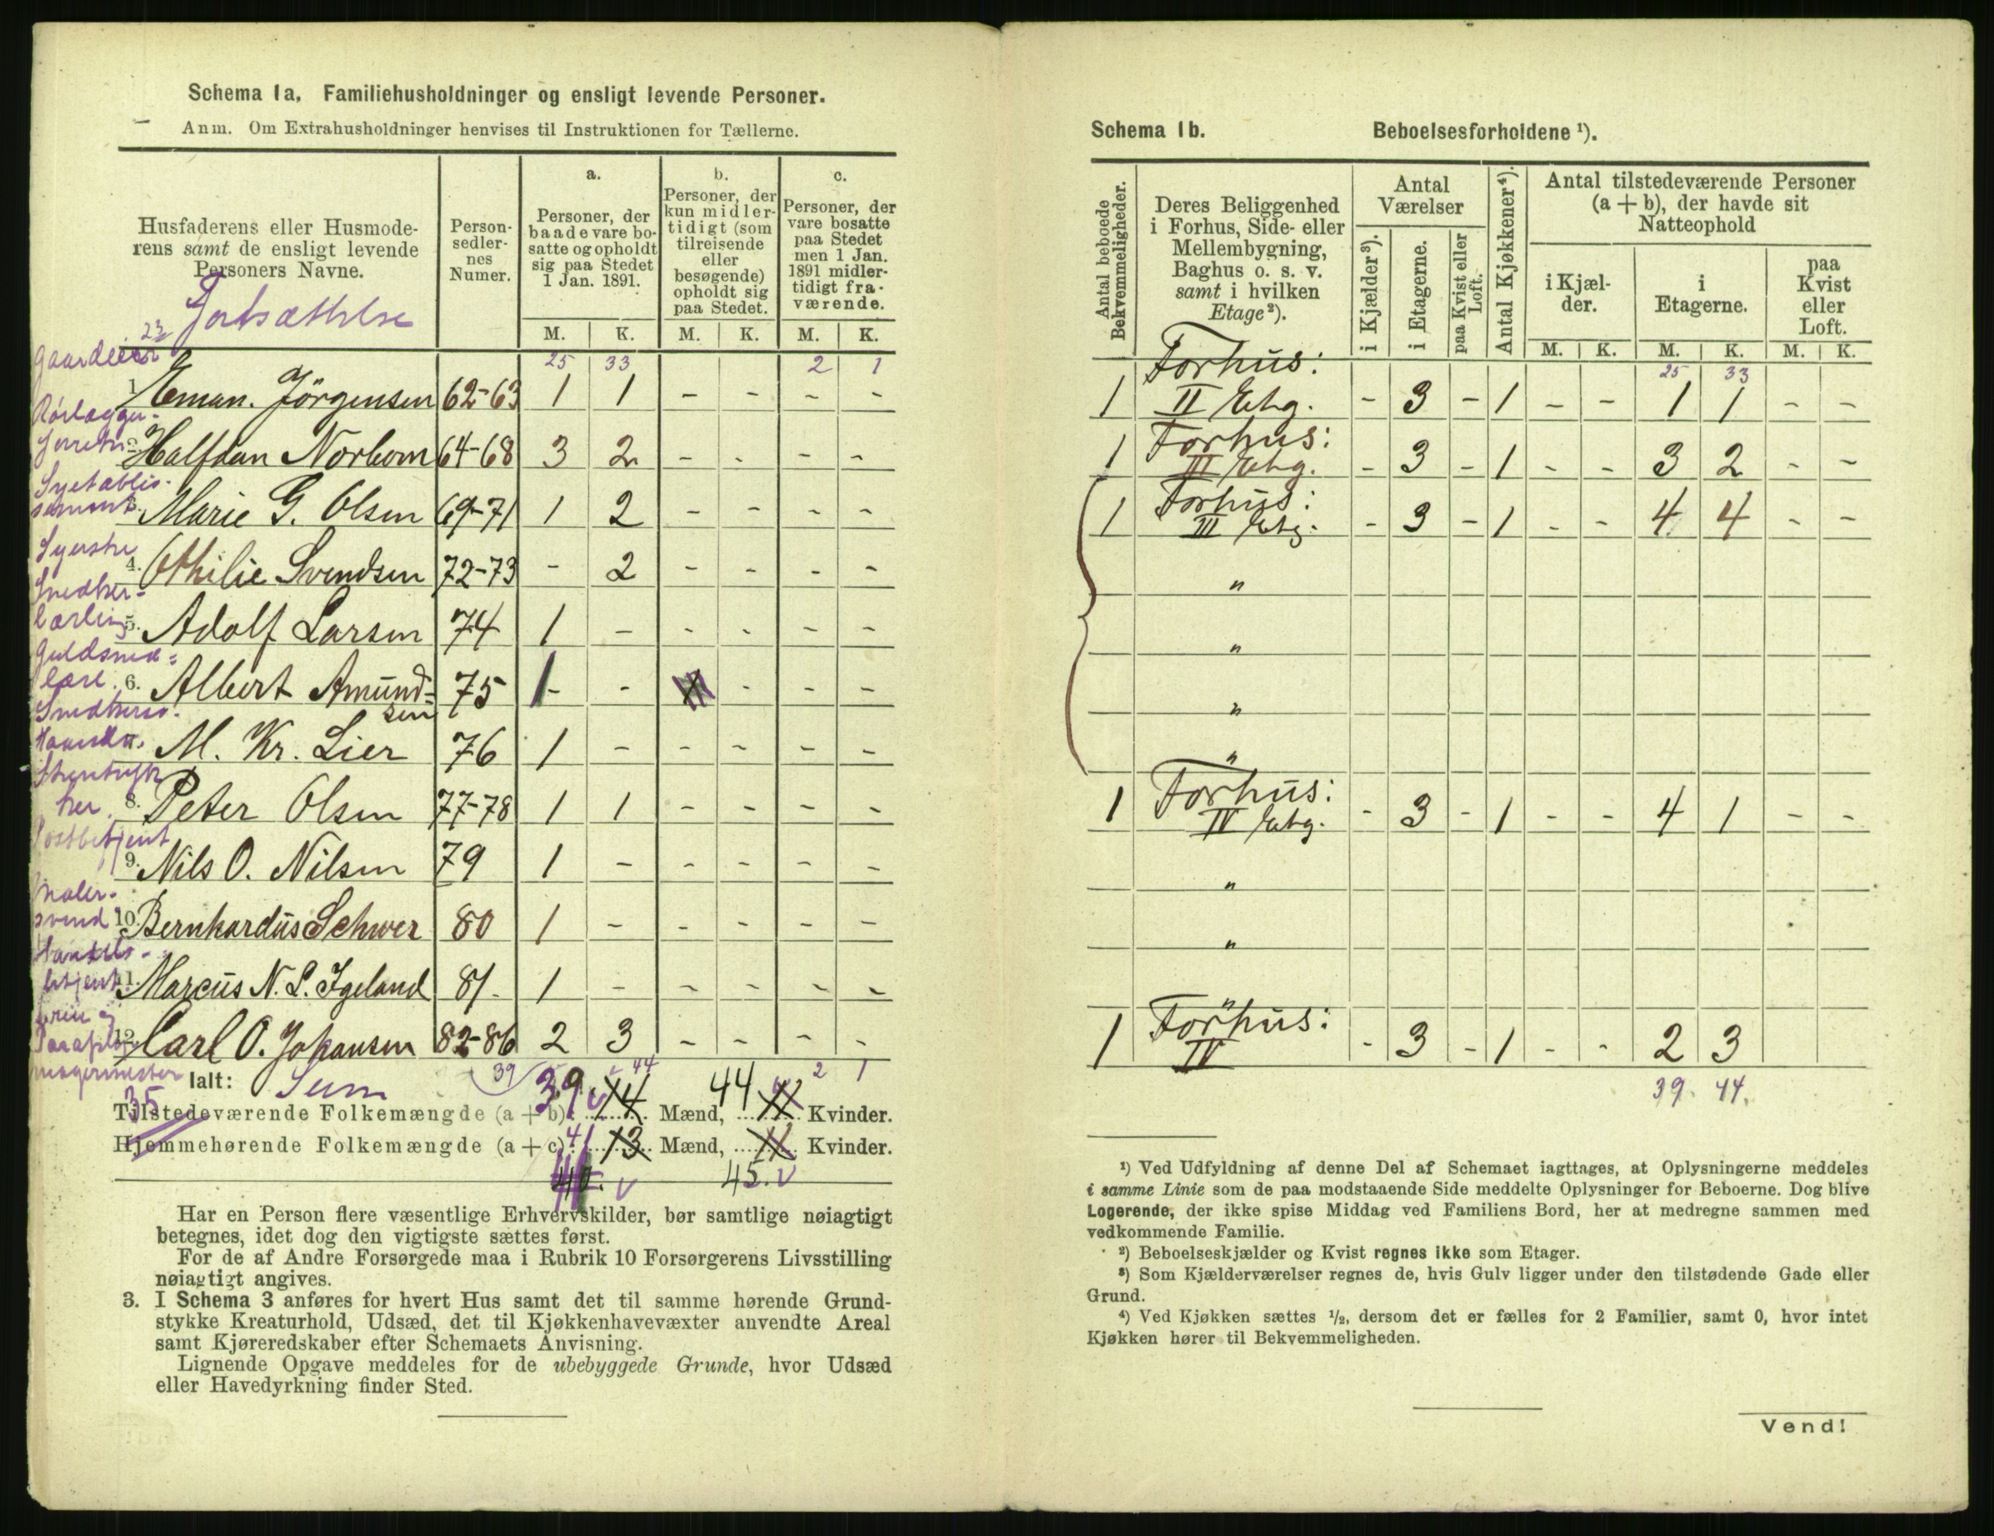 Schema 1a. Familiehusholdninger og ensligt levende Personer.
Anm. Om Extrahusholdninger henvises til Instruktionen for Tællerne.
Husfaderens eller Husmoderens samt de ensligt levende Personers Navne.
Personsedlernes Numer.
a. Personer, der baade vare bosatte og opholdt sig paa Stedet 1 Jan. 1891.
b. Personer, der kun midlertidigt (som tilreisende eller besøgende) opholdt sig paa Stedet.
c. Personer, der vare bosatte paa Stedet men 1 Jan. 1891 midlertidigt fraværende.
M. K. M. K. M. K.
Fortsættelse
23 25 33 2 1
1. Eman. Jörgensen 62-63 1 1 - - - -
Rörlægger
2. Halfdan Norbom 64-68 3 2 - - - -
Syetablissement
3. Marie G. Olsen 69-71 1 2 - - - -
Syerske
4. Othilie Svendsen 72-73 - 2 - - - -
Snedkerlærling
5. Adolf Larsen 74 1 - - - - -
Guldsmedlærl.
6. Albert Amundsen 75 1 - - - - -
7. M. Kr. Lier 76 1 - - - - -
8. Peter Olsen 77-78 1 1 - - - -
Postbetjent
9. Nils O. Nilsen 79 1 - - - - -
Malersvend
10. Bernhardus Schwer 80 1 - - - - -
Handelsbetjent
11. Marcus N. L. Igeland 81- 1 - - - - -
12. Carl O. Johansen 82-86 2 3 - - - -
Ialt: Sum 39 44 2 1
35
Tilstedeværende Folkemængde (a + b) 39 14 Mænd, 44 11 Kvinder.
Hjemmehørende Folkemængde (a + c) 41 13 Mænd, 11 Kvinder.
45.
Har en Person flere væsentlige Erhvervskilder, bør samtlige nøiagtigt
betegnes, idet dog den vigtigste sættes først.
For de af Andre Forsørgede maa i Rubrik 10 Forsørgerens Livsstilling
nøiagtigt angives.
3. I Schema 3 anføres for hvert Hus samt det til samme hørende Grund-
stykke Kreaturhold, Udsæd, det til Kjøkkenhavevæxter anvendte Areal
samt Kjøreredskaber efter Schemaets Anvisning.
Lignende Opgave meddeles for de ubebyggede Grunde, hvor Udsæd
eller Havedyrkning finder Sted.
Schema 1b. Beboelsesforholdene ¹).
Antal beboede Bekvemmeligheder.
Deres Beliggenhed i Forhus, Side- eller Mellembygning, Baghus o. s. v. samt i hvilken Etage ²).
Antal Værelser
i Kjælder ³). i Etagerne. paa Kvist eller Loft.
Antal Kjøkkener ⁴).
Antal tilstedeværende Personer (a + b), der havde sit Natteophold
i Kjælder. i Etagerne. paa Kvist eller Loft.
M. K. M. K. M. K.
25 33
1 Forhus: II Etg. - 3 - 1 - - 1 1 - -
1 Forhus: III Etg. - 3 - 1 - - 3 2 - -
1 Forhus: III Etg. - 3 - 1 - - 4 4 - -
"
"
"
"
1 Forhus: IV Etg. - 3 - 1 - - 4 1 - -
"
"
"
1 Forhus: IV - 3 - 1 - - 2 3
39. 44.
¹) Ved Udfyldning af denne Del af Schemaet iagttages, at Oplysningerne meddeles
i samme Linie som de paa modstaaende Side meddelte Oplysninger for Beboerne. Dog blive
Logerende, der ikke spise Middag ved Familiens Bord, her at medregne sammen med
vedkommende Familie.
²) Beboelseskjælder og Kvist regnes ikke som Etager.
³) Som Kjælderværelser regnes de, hvis Gulv ligger under den tilstødende Gade eller
Grund.
⁴) Ved Kjøkken sættes ½, dersom det er fælles for 2 Familier, samt 0, hvor intet
Kjøkken hører til Bekvemmeligheden.
Vend!